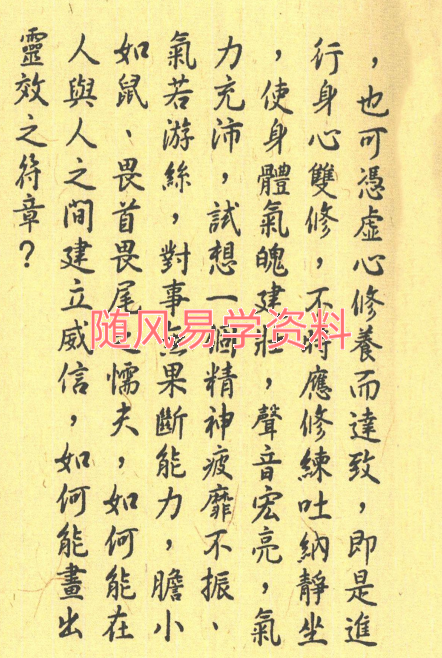 ，也可憑虛心修養而達致，即是進
行身心雙修，不應修練吐納靜坐
，使身體氣魄建壯，聲音宏亮，氣
力充沛，試想一個精神疲靡不振、
氣若游絲，對事無果斷能力，膽小
如鼠、畏首畏尾之懦夫，如何能在
人與人之間建立威信，如何能畫出
靈效之符章？
随风易学资料